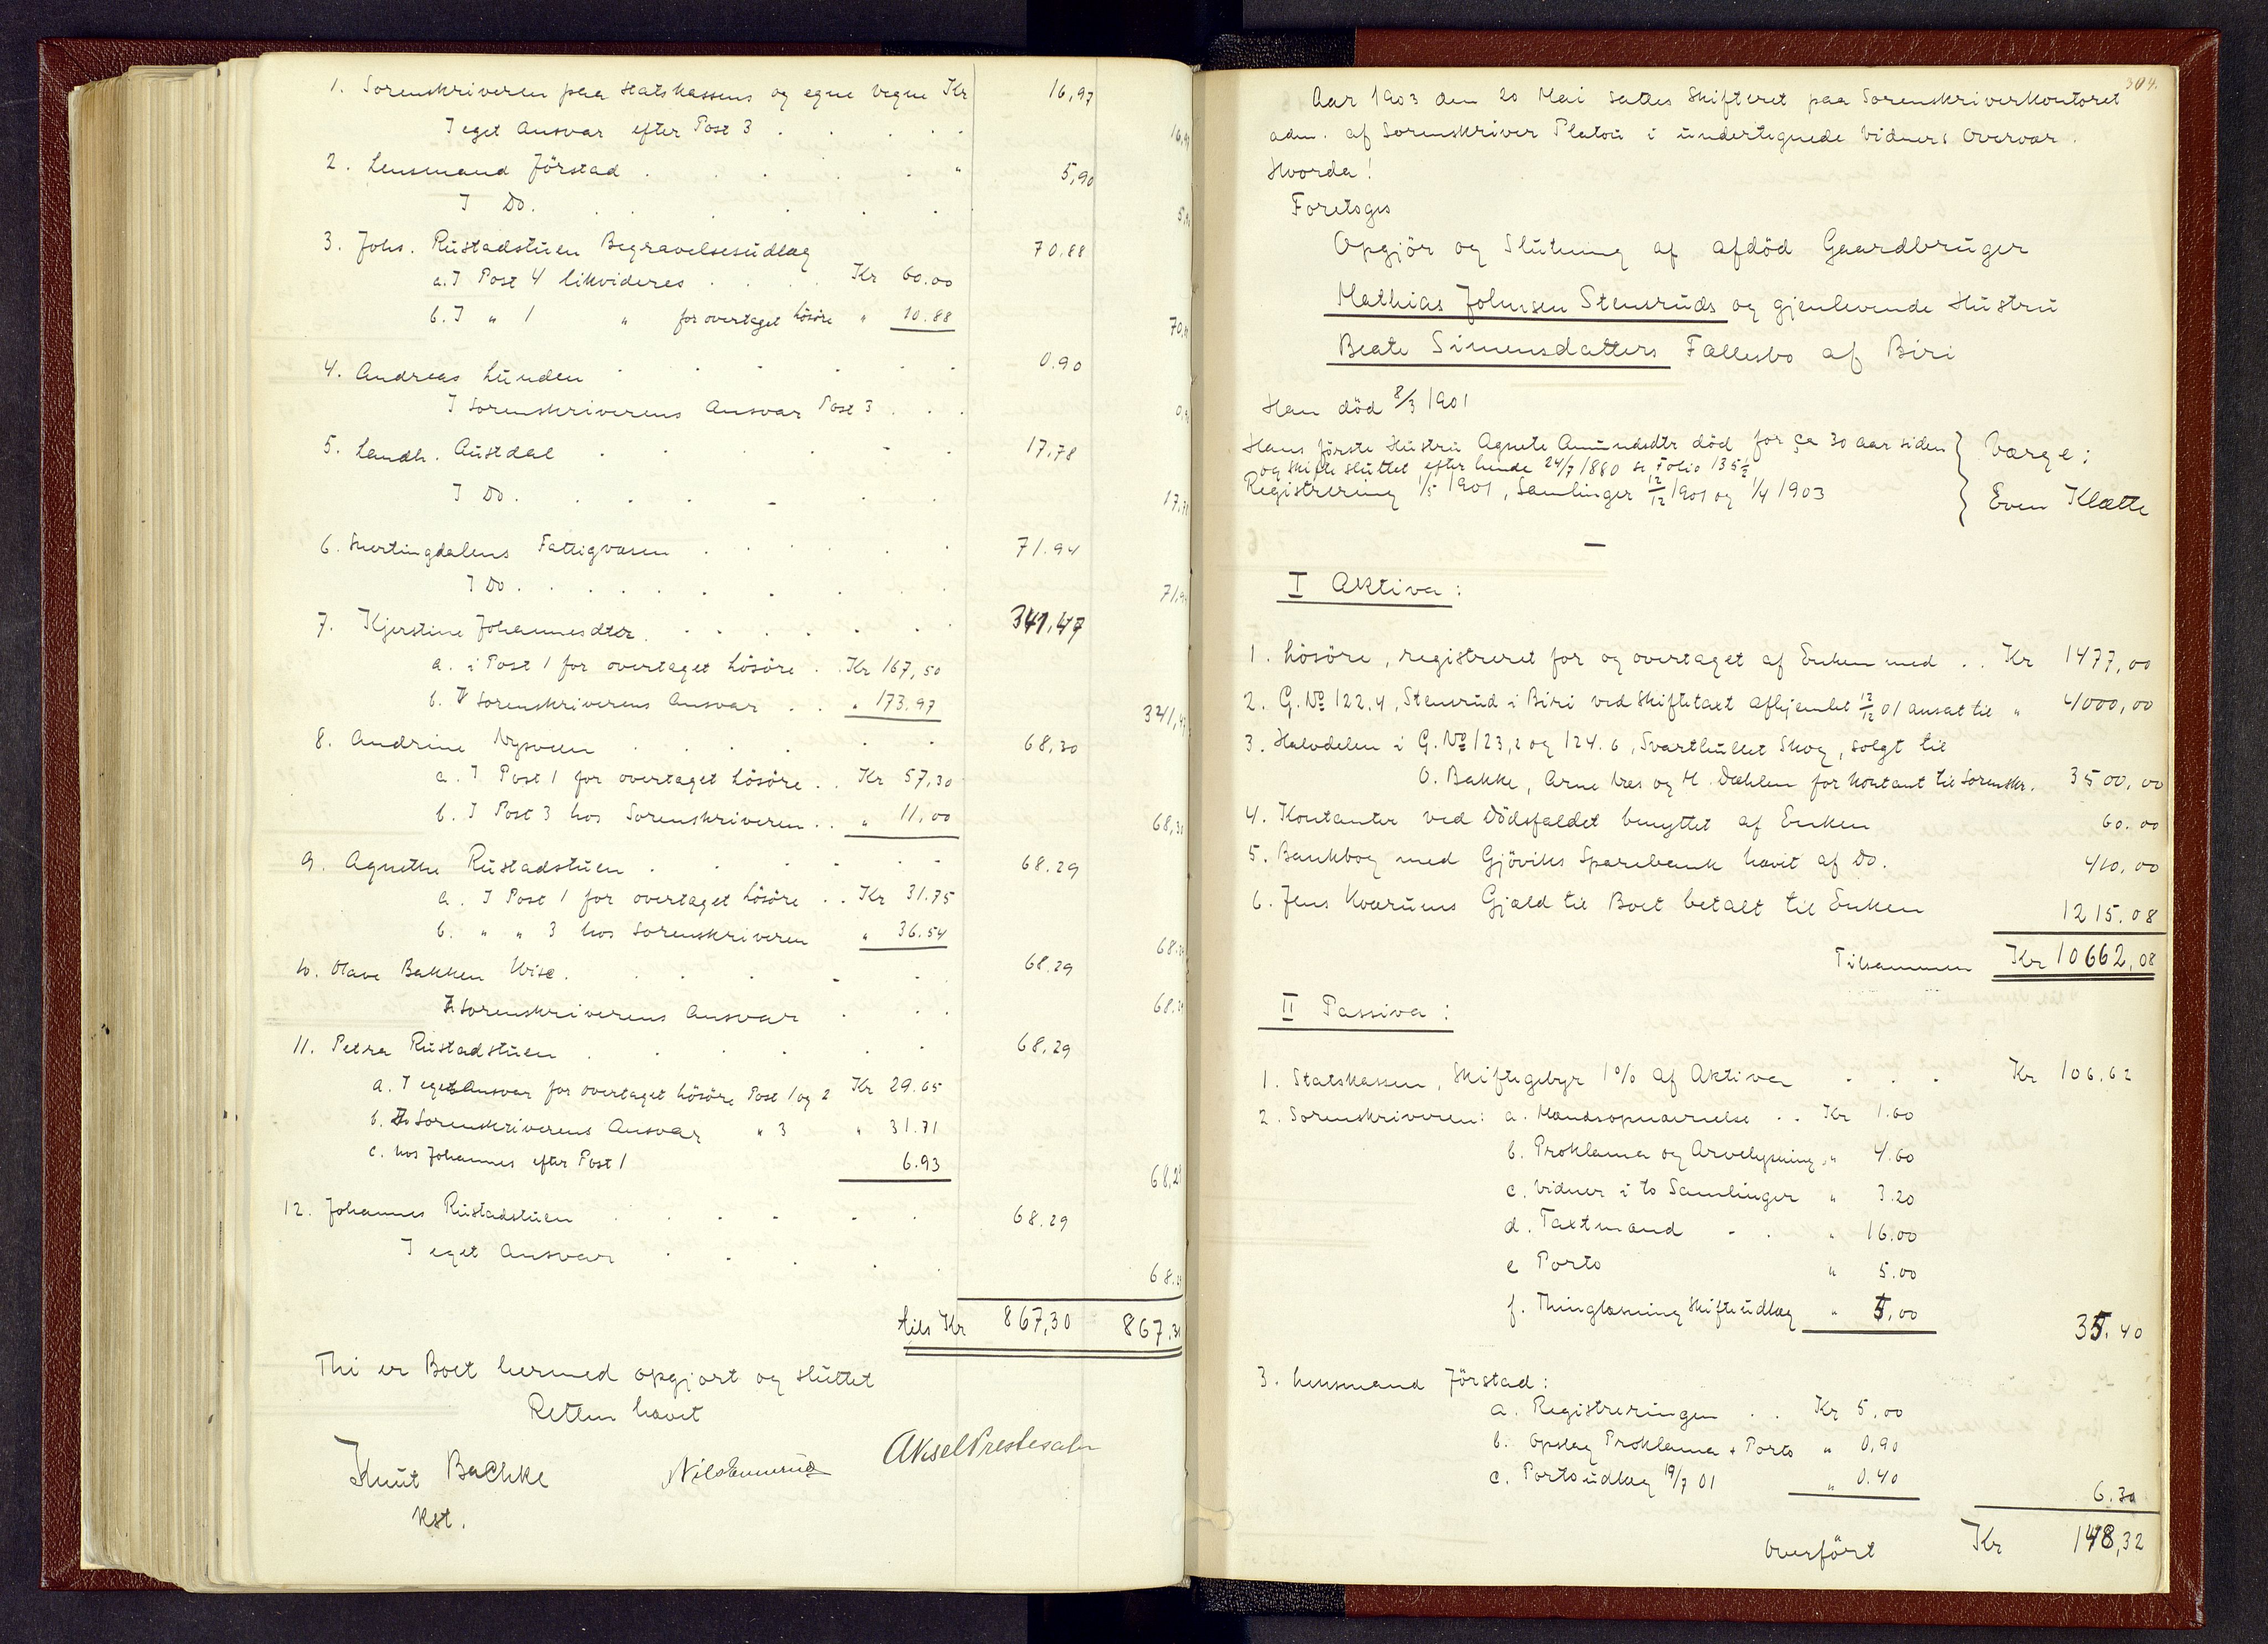 1. Sorenskriveren paa Statskassens og egne vegne Kr 16,97
I eget Ansvar efter Post 3 . . . . . 16,9
2. Lensmand Förstad . . . . . " 5,90
I Do. . . . . . . 5,9
3. Johs. Rustadstuen Begravelsesudlæg 70.88
a. I Post 4 likvideres . . . . Kr 60.00
b. I " 1 " for overtaget Lösöre " 10.88 70,8
4. Andreas Lunden . . . . . . 0.90
I Sorenskriverens Ansvar Post 3 . . . 0,9
5. Landh. Austdal . . . . . . 17,78
I Do. . . . . . . 17,78
6. Snertingdalens Fattigvæsen . . . . . . 71.94
I Do . . . . . . . . 71,9
7. Kjerstine Johannesdtr. . . . . . . 341,47
a. i Post 1 for overtaget Lösöre . . Kr 167,50
b. I Sorenskriverens Ansvar . . . " 173.97 341,47
8. Andrine Nysveen . . . . . . 68,30
a. I Post 1 for overtaget Lösöre . . Kr 57,30
b. I Post 3 hos Sorenskriveren . . " 11,00 68,30
9. Agnethe Rustadstuen . . . . . 68.29
a. I Post 1 for overtaget Lösöre . . Kr 31.75
b. " " 3 hos Sorenskriveren " 36.54 68.29
10. Olave Bakken Wise. . . . . . 68.29
I Sorenskriverens Ansvar . . . 68.29
11. Petra Rustadstuen . . . . . . 68.29
a. I eget Ansvar for overtaget Lösöre Post 1 og 2 Kr 29.65
b. I Sorenskriverens Ansvar " 3 " 31.71
c. hos Johannes efter Post 1 6.93 68,29
12. Johannes Rustadstuen . . . . . . 68.29
I eget Ansvar . . . . . 68.29
tils Kr 867,30 867,30
Thi er Boet hermed opgjort og sluttet
Retten hævet
Knut Bachke
kst.
Aksel Prestesater
304.
Aar 1903 den 20 Mai sattes Skifteret paa Sorenskriverkontoret
adm. af Sorenskriver Platou i undertegnede Vidners Overvær.
Hvorda!
Foretoges
Opgjör og Slutning af afdöd Gaardbruger
Mathias Johnsen Stensruds og gjenlevende Hustru
Beate Simensdatters Fællesbo af Biri
Han död 8/3 1901
Hans förste Hustru Agnete Amundsdtr död for ca 30 aar siden
og skifte sluttet efter hende 24/7 1880 se Folio 135 1/2
Registrering 1/5 1901, Samlinger 12/12 1901 og 1/4 1903
Værge:
Even Klætte
I Aktiva:
1. Lösöre, registreret for og overtaget af Enken med . . Kr 1477,00
2. G. No 122.4, Stensrud i Biri ved Skiftetaxt afhjemlet 12/12 01 ansat til " 4000,00
3. Halvdelen i G. No 123,2 og 124.6, Svarthullet Skog, solgt til
O. Bakke, Arne Næs og M. Dæhlen for kontant til Sorenskr. 3500,00
4. Kontanter ved Dödsfaldet benyttet af Enken 60.00
5. Bankbog med Gjöviks Sparebank hævet af Do. 410,00
6. Jens Kværuens Gjæld til Boet betalt til Enken 1215.08
Tilsammen Kr 10662,08
II Passiva:
1. Statskassen, Skiftegebyr 1% af Aktiva . . . Kr 106.62
2. Sorenskriveren: a. Mandsopnævnelse . . Kr 1.60
b. Proklama og Arvelysning, " 4.60
c. Vidner i to Samlinger " 3.20
d. Taxtmænd - . " 16.00
e Porto " 5.00
f. Thinglæsning Skifteudlæg " 5,00 35.40
3. Lensmand Förstad:
a. Registreringen . . Kr 5,00
b. Opslag Proklama + Porto " 0,90
c. Portoudlæg 19/7 01 " 0.40 6.30
Overfört Kr 148,32